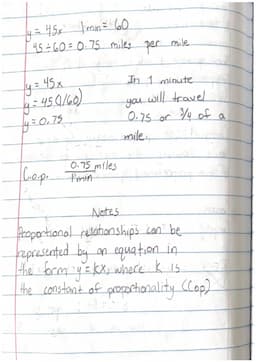 y = 45x   1 min = 60
45 ÷ 60 = 0.75 miles per mile
y = 45x
y = 45(1/60)
y = 0.75
In 1 minute
you will travel
0.75 or 3/4 of a
mile.
C.o.p. 0.75 miles
1 min
Notes
Proportional relationships can be
represented by an equation in
the form y = kx, where k is
the constant of proportionality (Cop)